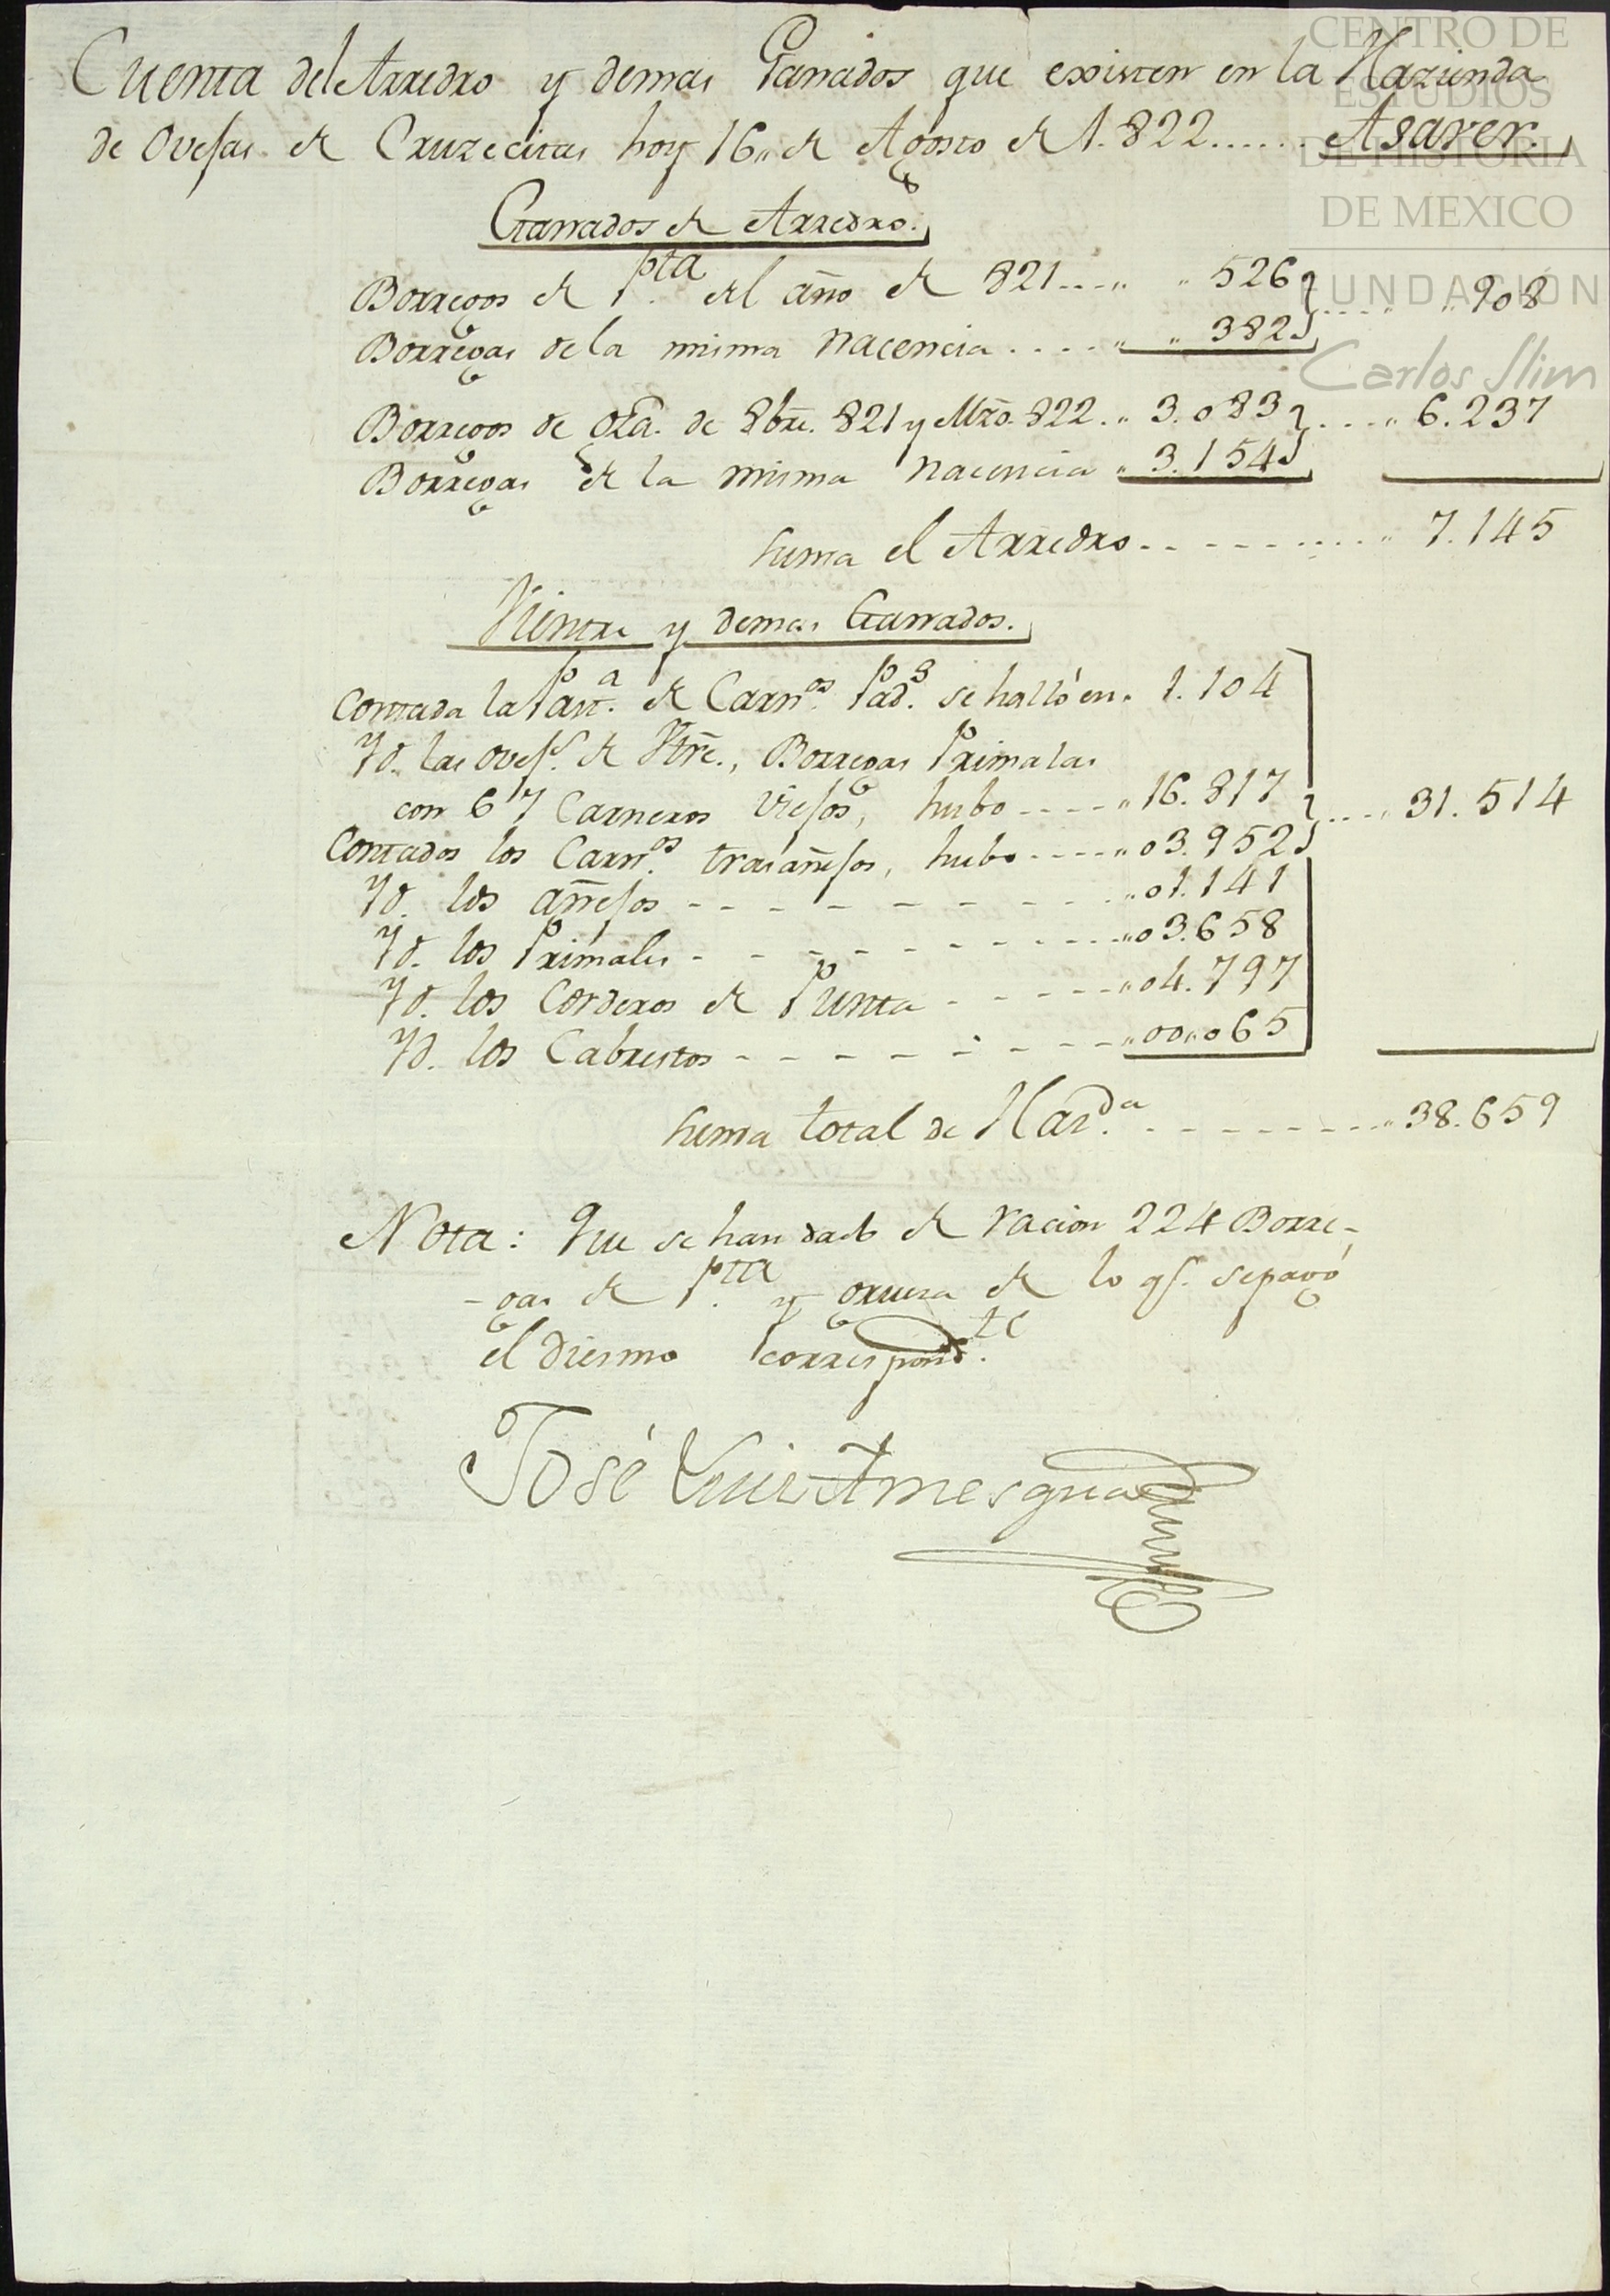 Cuenta del Arredro y demas Ganados que existen en la Hazienda
de Ovejas de Cruzecitas hoy 16,, de Agosto de 1.822...... A saver.
Ganados de Arredro.
Borregos de Pta. del año de 821....,, ,, 526 }....,, ,, 908
Borregas de la misma nacencia....,, ,, 382
Borregos de gza. de 8bre. 821 y Mzo. 822.,, 3.083 }....,, 6.237
Borregas de la misma nacencia ,, 3.154
Suma el Arredro.............,, 7.145
Vientre y demas Ganados.
Contada la Parta. de Carnos. Pads. se halló en,, 1.104
Yd. las ovejs. de Vtre., Borregas Primalas
con 67 Carneros Viejos, hubo....,, 16.817 }....,, 31.514
Contados los Carnos. trasañejos, hubo....,, 03.952
Yd. los añejos - - - - - - - - -,, 01.141
Yd. los Primales - - - - - - - -,, 03.658
Yd. los Corderos de Punta - - - - -,, 04.797
Yd. los Cabrestos - - - - - - - -,, 00,,065
Suma total de Hazda. - - - - - - - -,, 38.659
Nota: Que se han dado de racion 224 Borre-
-gas de Pta. y gruesa de lo qe. se pagó
el Diesmo correspondte.
José Luis Amesgua
CENTRO DE
ESTUDIOS
DE HISTORIA
DE MEXICO
FUNDACIÓN
Carlos Slim